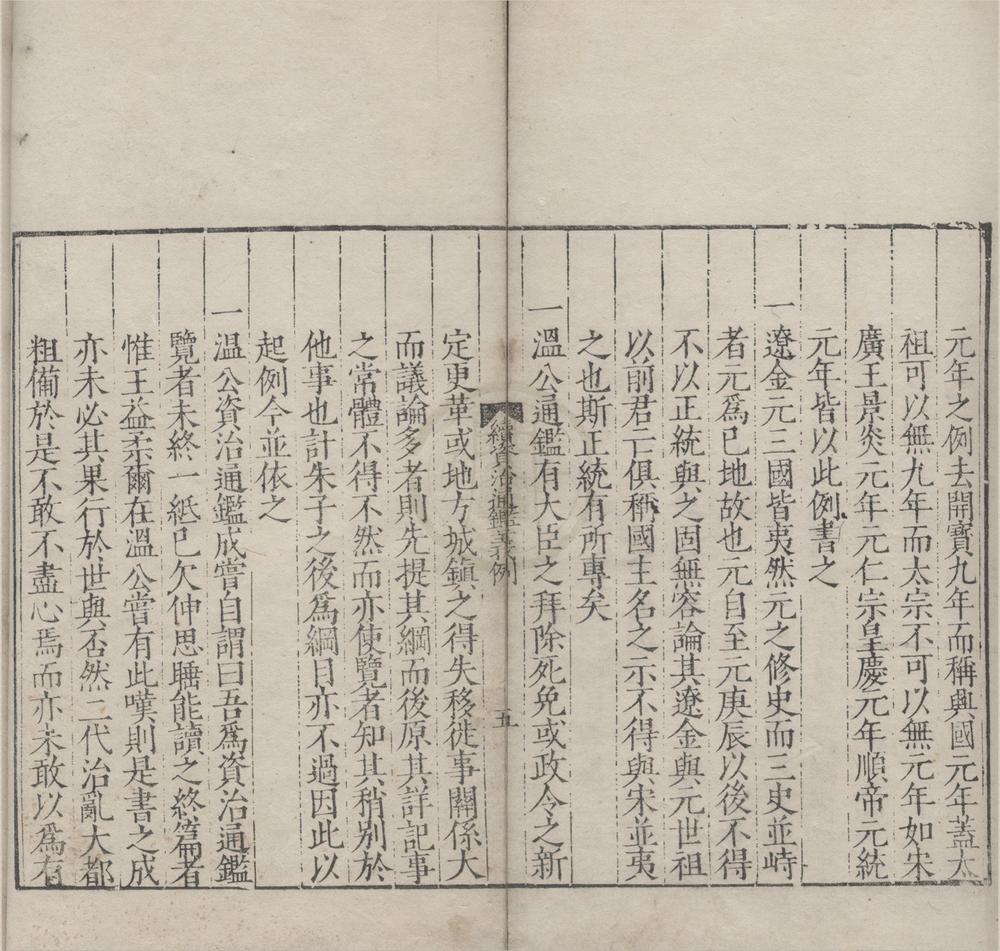 元年之例去開寶九年而稱興國元年蓋太
祖可以無九年而太宗不可以無元年如宋
廣王景炎元年元仁宗皇慶元年順帝元統
元年皆以此例書之
一遼金元三國皆夷然元之修史而三史並峙
者元爲已地故也元自至元庚辰以後不得
不以正統與之固無容論其遼金與元世祖
以前君亡俱稱國主名之示不得與宋並夷
之也斯正統有所專矣
一溫公通鑑有大臣之拜除死免或政令之新
續資治通鑑義例
五
定更革或地方城鎮之得失移徙事關係大
而議論多者則先提其綱而後原其詳記事
之常體不得不然而亦使覽者知其稍别於
他事也計朱子之後爲綱目亦不過因此以
起例今並依之
一温公資治通鑑成嘗自謂曰吾爲資治通鑑
覽者未終一紙已欠伸思睡能讀之終篇者
惟王益柔爾在溫公嘗有此嘆則是書之成
亦未必其果行於世與否然二代治亂大都
粗備於是不敢不盡心焉而亦未敢以爲有